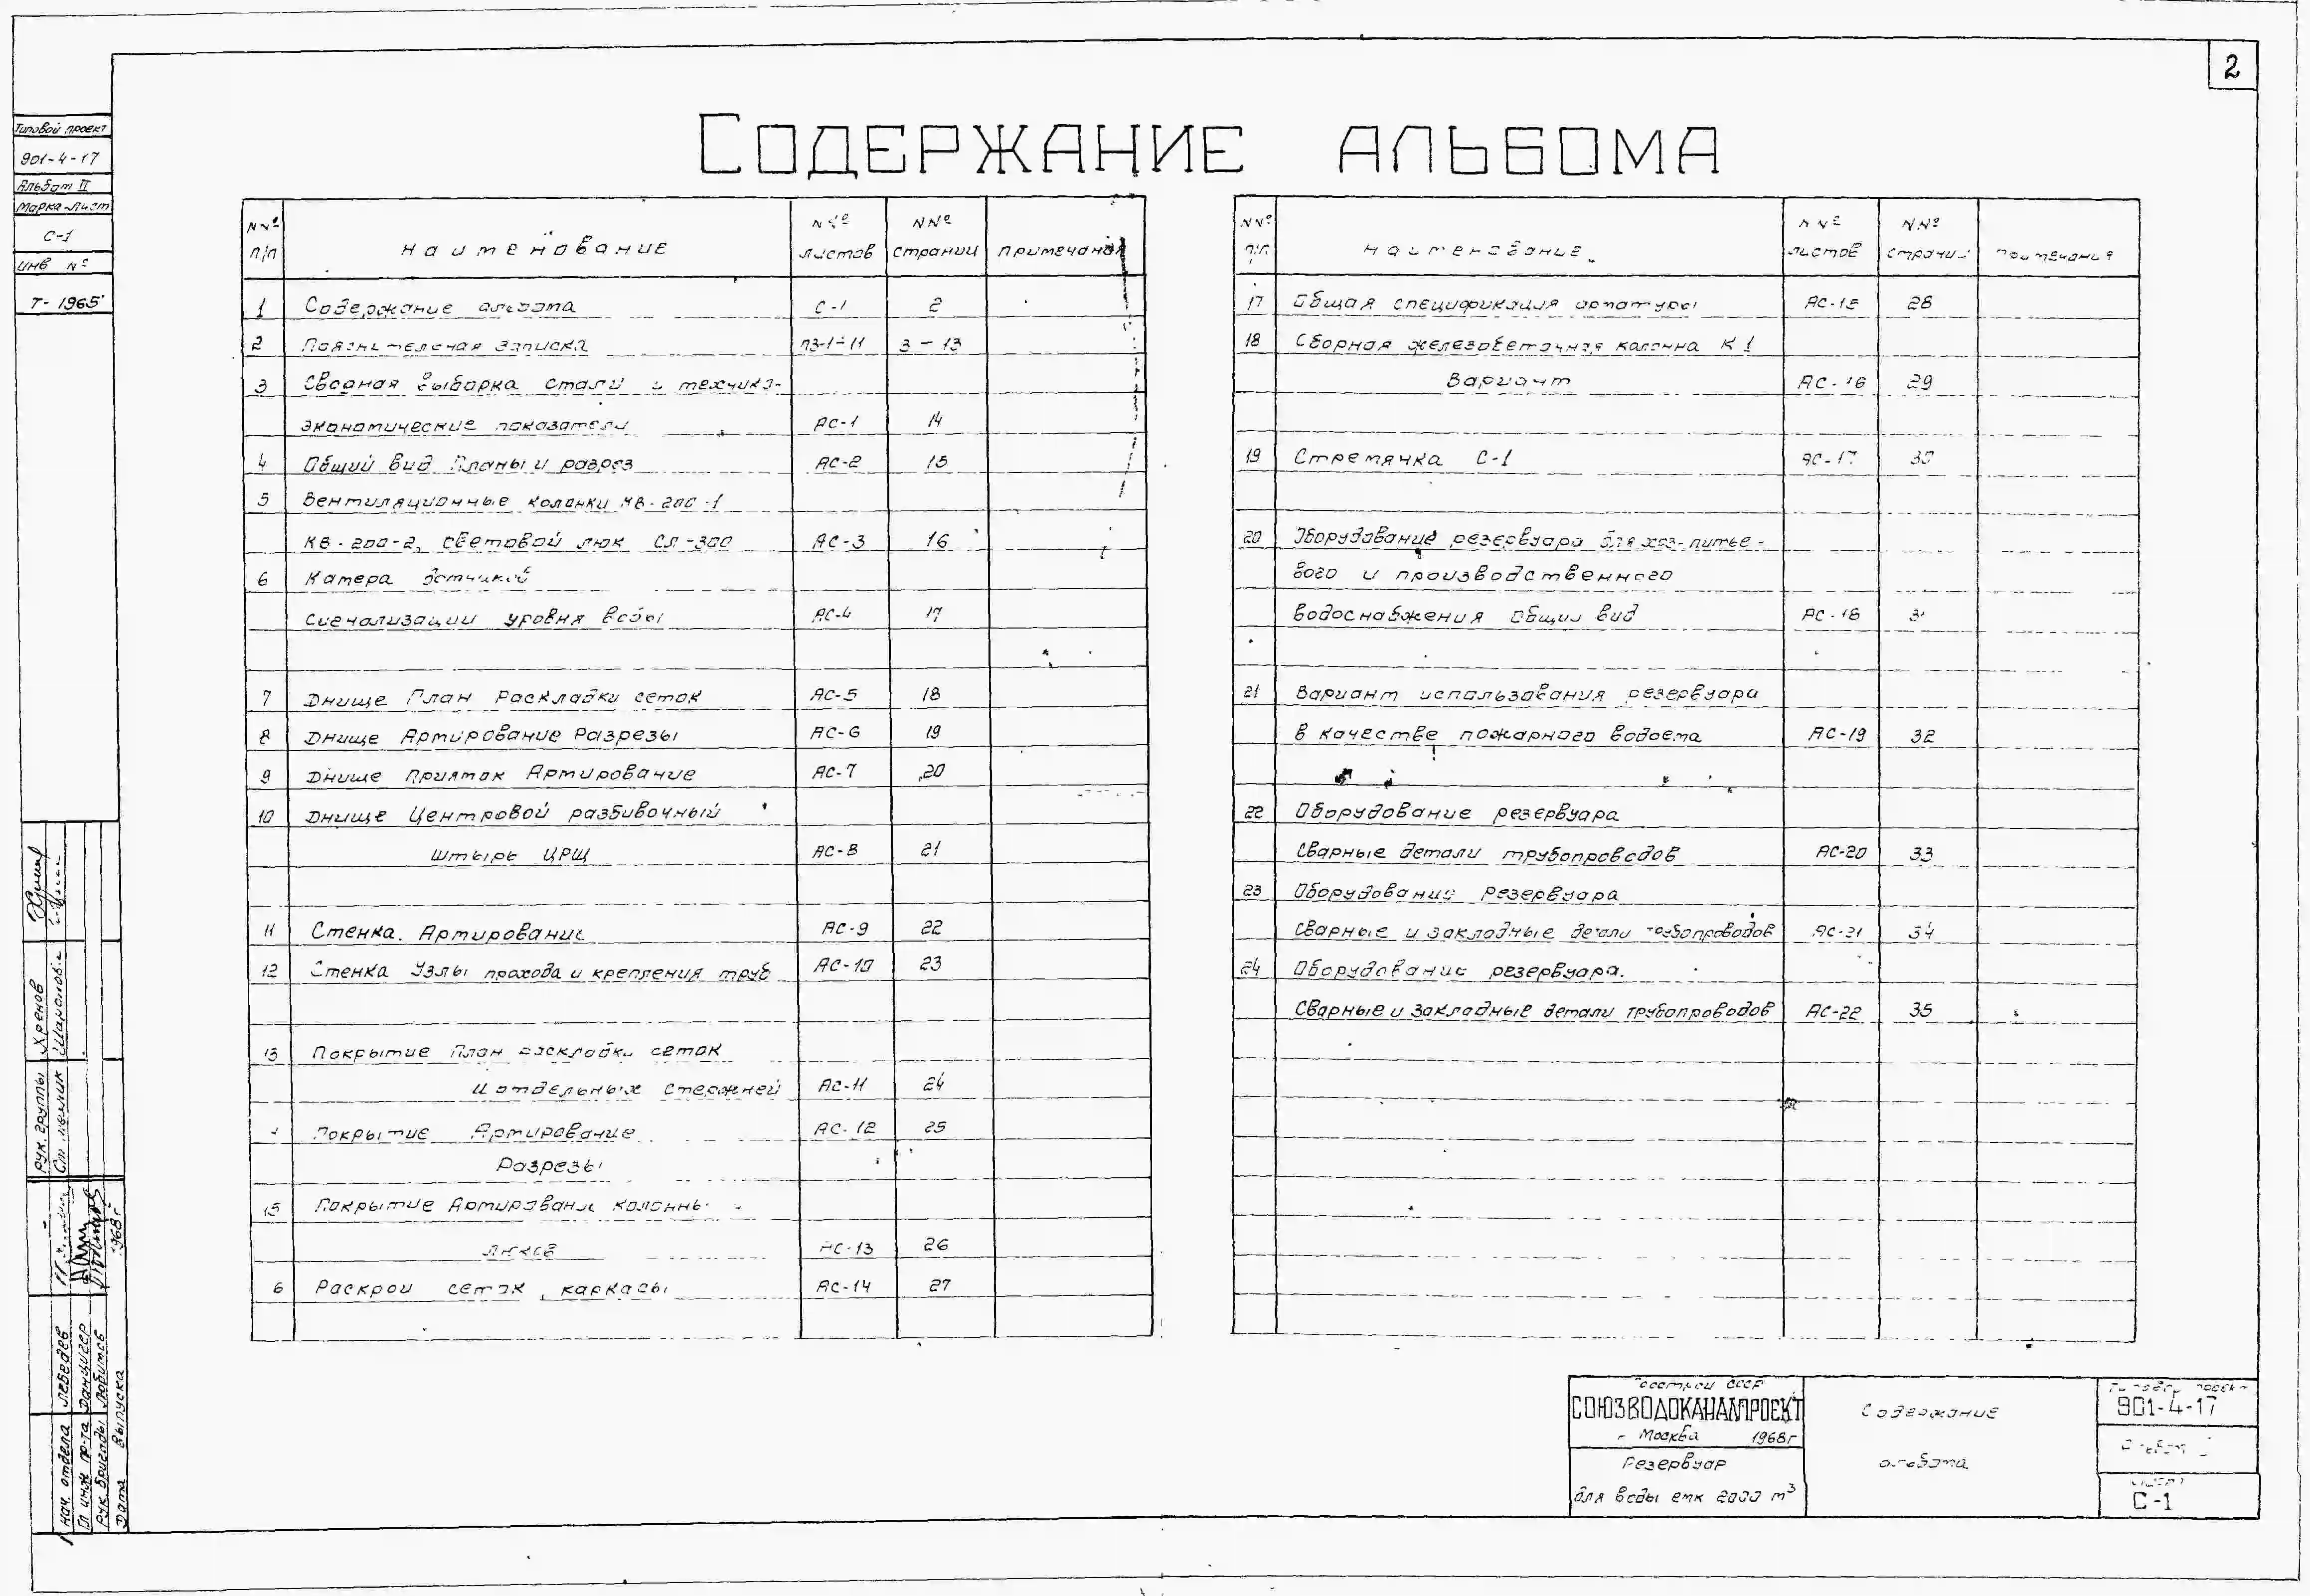 2
Содержание альбома
Типовой проект
901-4-17
Альбом II
Марка-лист
С-1
инв №
Т-1965
NNº п/п наименование NNº листов NNº страниц примечания
1 Содержание альбома С-1 2
2 Пояснительная записка ПЗ-1-11 3-13
3 Сводная выборка стали и технико-
экономические показатели АС-1 14
4 Общий вид Планы и разрез АС-2 15
5 Вентиляционные колонки КВ-200-1
КВ-200-2, световой люк СЛ-300 АС-3 16
6 Камера датчиков
сигнализации уровня воды АС-4 17
7 Днище План раскладки сеток АС-5 18
8 Днище Армирование Разрезы АС-6 19
9 Днище Приямок Армирование АС-7 20
10 Днище Центровой разбивочный
штырь ЦРШ АС-8 21
11 Стенка. Армирование АС-9 22
12 Стенка Узлы прохода и крепления труб АС-10 23
13 Покрытие План раскладки сеток
и отдельных стержней АС-11 24
Покрытие Армирование АС-12 25
Разрезы
15 Покрытие Армирование колонны
люков АС-13 26
6 Раскрой сеток, каркасы АС-14 27
NNº п/п наименование NNº листов NNº страниц примечания
17 Общая спецификация арматуры АС-15 28
18 Сборная железобетонная колонна К1
Вариант АС-16 29
19 Стремянка С-1 АС-17 30
20 Оборудование резервуара для хоз-питье-
вого и производственного
водоснабжения Общий вид АС-18 31
21 Вариант использования резервуара
в качестве пожарного водоема АС-19 32
22 Оборудование резервуара
Сварные детали трубопроводов АС-20 33
23 Оборудование резервуара
Сварные и закладные детали трубопроводов АС-21 34
24 Оборудование резервуара.
Сварные и закладные детали трубопроводов АС-22 35
Рук. группы Хренов
Ст. техник
Нач. отдела Лебедев
Гл инж пр-та Данцигер
Рук. бригады
Дата выпуска 1968г
Госстрой СССР
СОЮЗВОДОКАНАЛПРОЕКТ
г Москва 1968г
Резервуар
для воды емк 2000 м³
Содержание
альбома
Типовой проект
901-4-17
Альбом
С-1